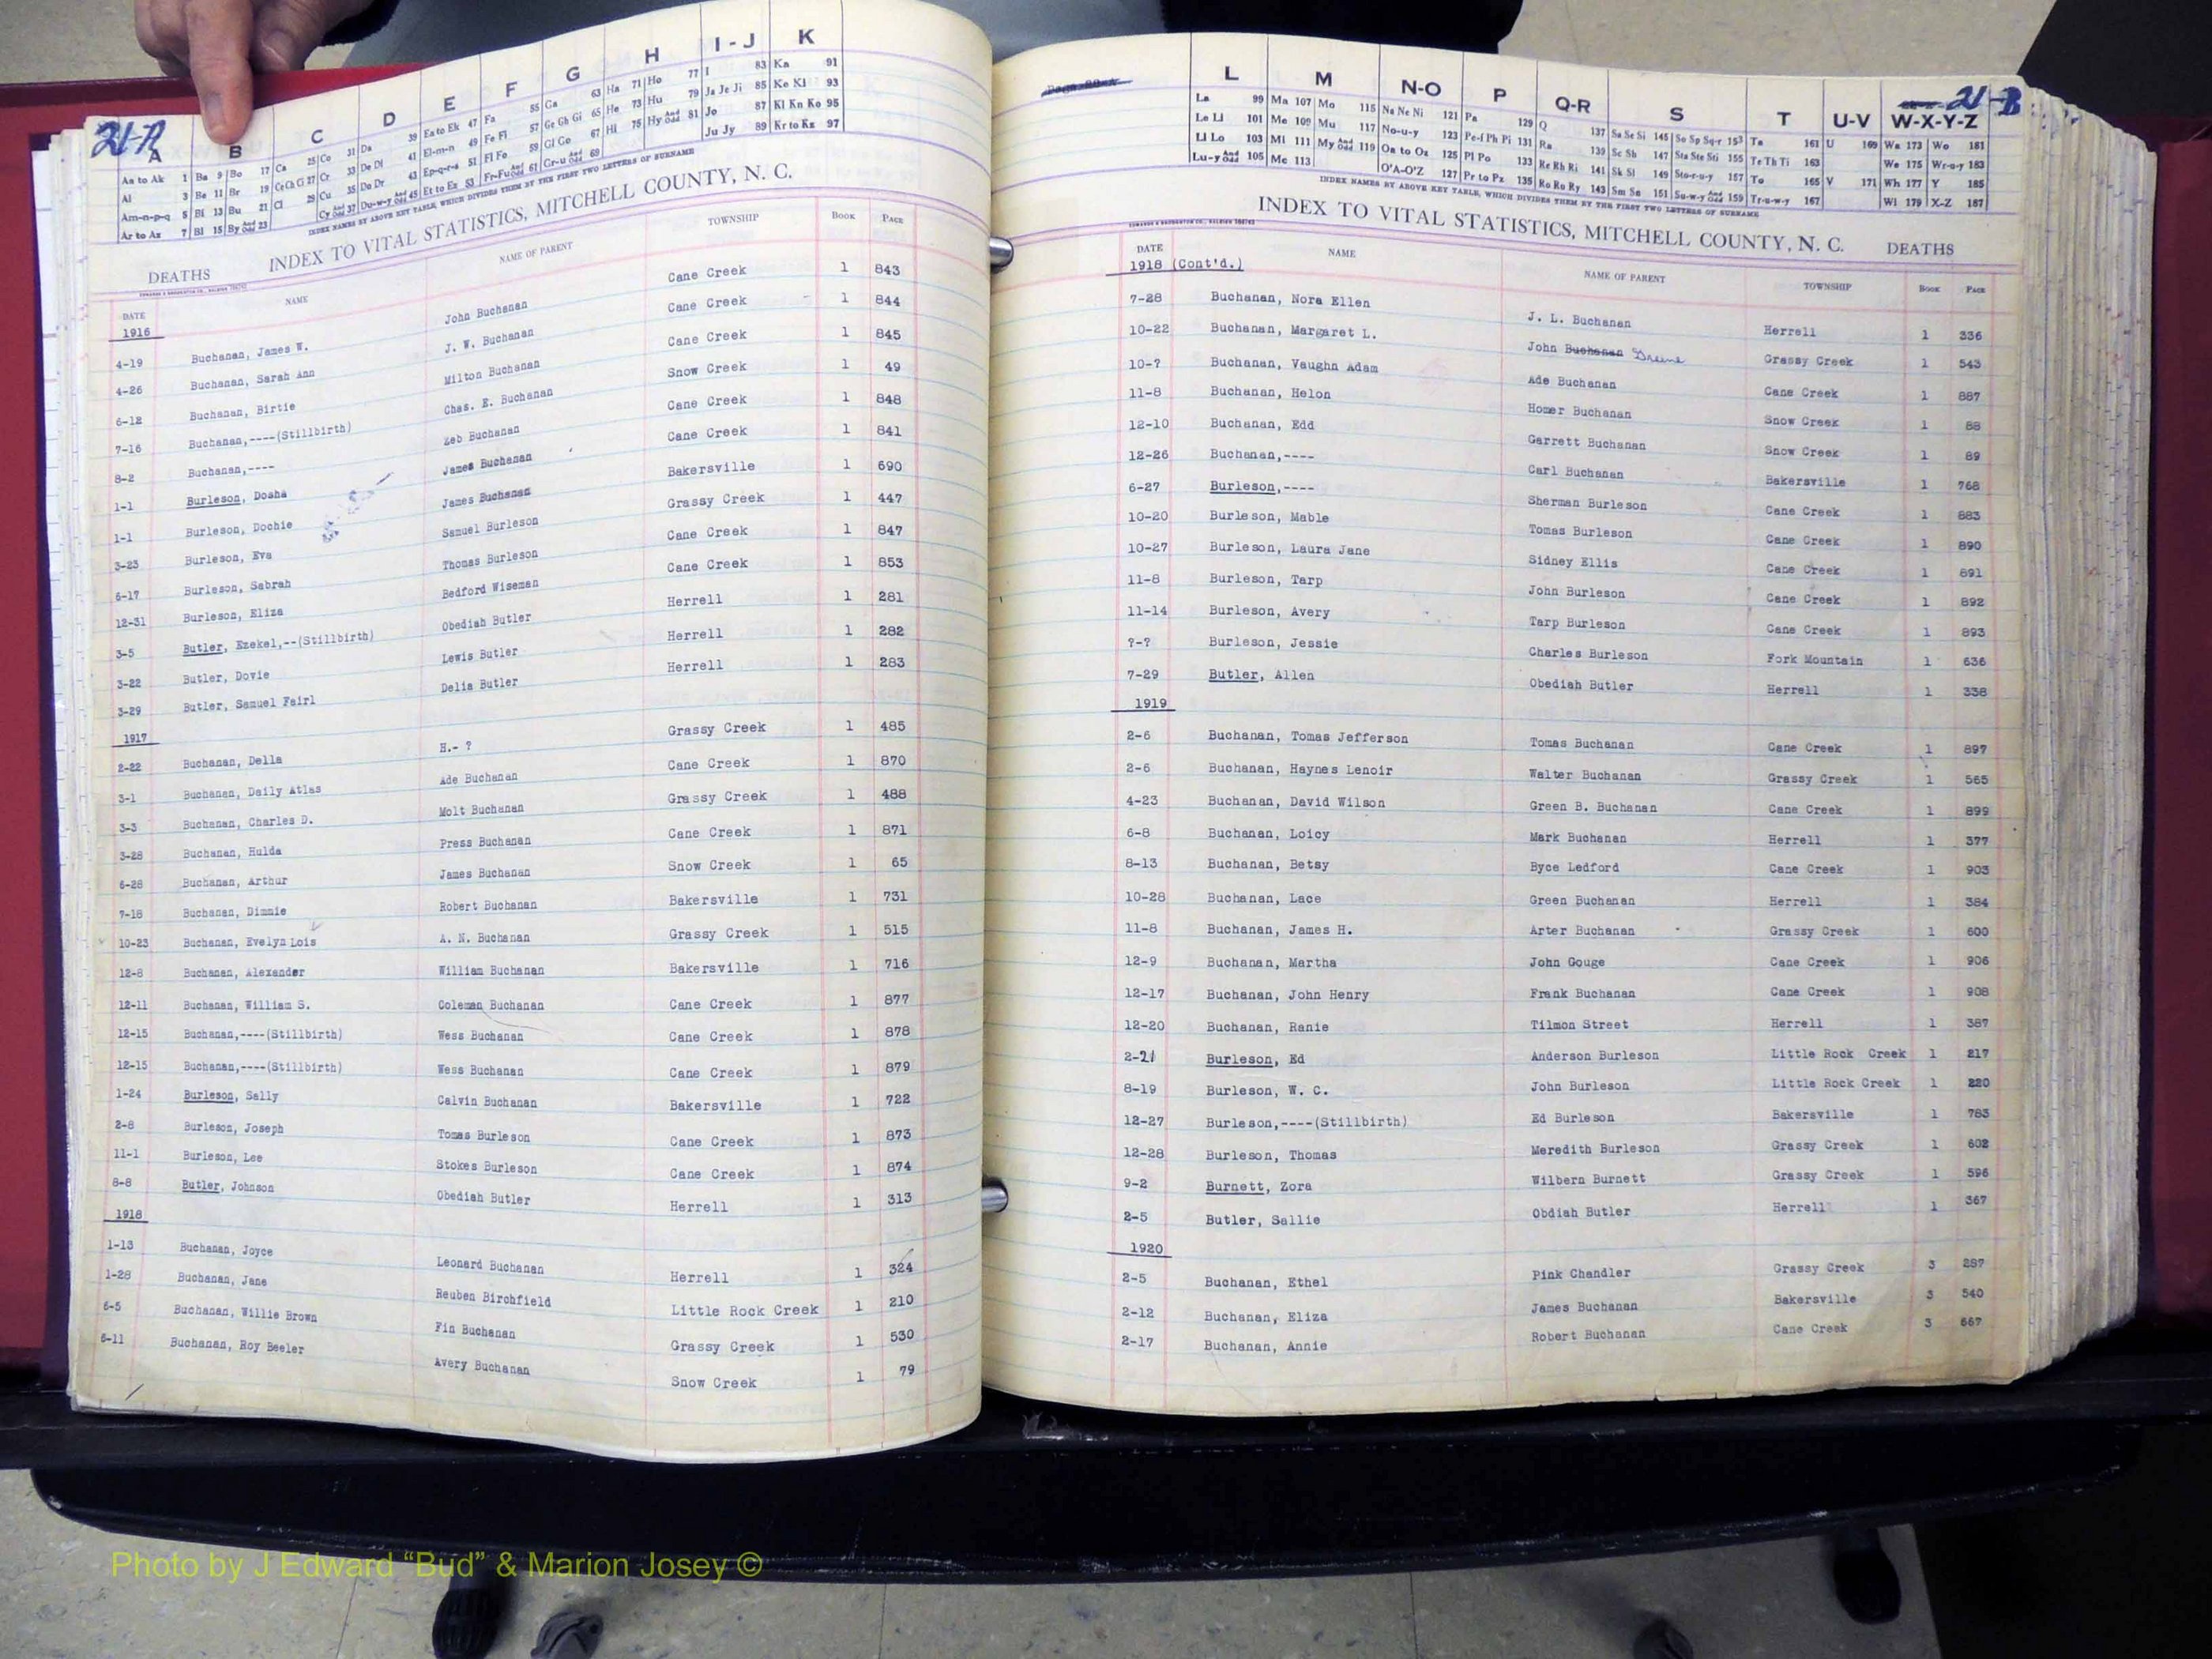 21-A
A B C D E F G H I-J K
Aa to Ak 1 Ba 9 Bo 17 Ca 25 Co 31 Da 39 Ea to Ek 47 Fa 55 Ga 63 Ha 71 Ho 77 I 83 Ka 91
Al 3 Be 11 Br 19 Ce Ch Ci 27 Cr 33 De Di 41 El-m-n 49 Fe Fi 57 Ge Gh Gi 65 He 73 Hu 79 Ja Je Ji 85 Ke Ki 93
Am-n-p-q 5 Bi 13 Bu 21 Cl 29 Cu 35 Do Dr 43 Ep-q-r-s 51 Fl Fo 59 Gl Go 67 Hi 75 Hy And Odd 81 Jo 87 Kl Kn Ko 95
Ar to Az 7 Bl 15 By And Odd 23 Cy And Odd 37 Du-w-y And Odd 45 Et to Ez 53 Fr-Fu And Odd 61 Gr-u And Odd 69 Ju Jy 89 Kr to Kz 97
INDEX NAMES BY ABOVE KEY TABLE, WHICH DIVIDES THEM BY THE FIRST TWO LETTERS OF SURNAME
DEATHS INDEX TO VITAL STATISTICS, MITCHELL COUNTY, N. C.
DATE NAME NAME OF PARENT TOWNSHIP BOOK PAGE
1916
4-19 Buchanan, James W. John Buchanan Cane Creek 1 843
4-26 Buchanan, Sarah Ann J. W. Buchanan Cane Creek 1 844
6-12 Buchanan, Birtie Milton Buchanan Cane Creek 1 845
7-16 Buchanan,----(Stillbirth) Chas. E. Buchanan Snow Creek 1 49
8-2 Buchanan,---- Zeb Buchanan Cane Creek 1 848
1-1 Burleson, Dosha James Buchanan Cane Creek 1 841
1-1 Burleson, Dochie James Buchanan Bakersville 1 690
3-23 Burleson, Eva Samuel Burleson Grassy Creek 1 447
6-17 Burleson, Sabrah Thomas Burleson Cane Creek 1 847
12-31 Burleson, Eliza Bedford Wiseman Cane Creek 1 853
3-5 Butler, Ezekel,--(Stillbirth) Obediah Butler Herrell 1 281
3-22 Butler, Dovie Lewis Butler Herrell 1 282
3-29 Butler, Samuel Fairl Delia Butler Herrell 1 283
1917
2-22 Buchanan, Della H.- ? Grassy Creek 1 485
3-1 Buchanan, Daily Atlas Ade Buchanan Cane Creek 1 870
3-3 Buchanan, Charles D. Molt Buchanan Grassy Creek 1 488
3-28 Buchanan, Hulda Press Buchanan Cane Creek 1 871
6-28 Buchanan, Arthur James Buchanan Snow Creek 1 65
7-18 Buchanan, Dimmie Robert Buchanan Bakersville 1 731
10-23 Buchanan, Evelyn Lois A. N. Buchanan Grassy Creek 1 515
12-8 Buchanan, Alexander William Buchanan Bakersville 1 716
12-11 Buchanan, William S. Coleman Buchanan Cane Creek 1 877
12-15 Buchanan,----(Stillbirth) Wess Buchanan Cane Creek 1 878
12-15 Buchanan,----(Stillbirth) Wess Buchanan Cane Creek 1 879
1-24 Burleson, Sally Calvin Buchanan Bakersville 1 722
2-8 Burleson, Joseph Tomas Burleson Cane Creek 1 873
11-1 Burleson, Lee Stokes Burleson Cane Creek 1 874
8-8 Butler, Johnson Obediah Butler Herrell 1 313
1918
1-13 Buchanan, Joyce Leonard Buchanan Herrell 1 324
1-28 Buchanan, Jane Reuben Birchfield Little Rock Creek 1 210
6-5 Buchanan, Willie Brown Fin Buchanan Grassy Creek 1 530
6-11 Buchanan, Roy Beeler Avery Buchanan Snow Creek 1 79
21-B
L M N-O P Q-R S T U-V W-X-Y-Z
La 99 Ma 107 Mo 115 Na Ne Ni 121 Pa 129 Q 137 Sa Se Si 145 So Sp Sq-r 153 Ta 161 U 169 Wa 173 Wo 181
Le Li 101 Me 109 Mu 117 No-u-y 123 Pe-f Ph Pi 131 Ra 139 Sc Sh 147 Sta Ste Sti 155 Te Th Ti 163 We 175 Wr-u-y 183
Ll Lo 103 Mi 111 My And Odd 119 Oa to Oz 125 Pl Po 133 Re Rh Ri 141 Sk Sl 149 Sto-r-u-y 157 To 165 V 171 Wh 177 Y 185
Lu-y And Odd 105 Mc 113 O'A-O'Z 127 Pr to Pz 135 Ro Ru Ry 143 Sm Sn 151 Su-w-y And Odd 159 Tr-u-w-y 167 Wi 179 X-Z 187
INDEX NAMES BY ABOVE KEY TABLE, WHICH DIVIDES THEM BY THE FIRST TWO LETTERS OF SURNAME
INDEX TO VITAL STATISTICS, MITCHELL COUNTY, N. C. DEATHS
DATE NAME NAME OF PARENT TOWNSHIP BOOK PAGE
1918 (Cont'd.)
7-28 Buchanan, Nora Ellen J. L. Buchanan Herrell 1 336
10-22 Buchanan, Margaret L. John Buchanan Greene Grassy Creek 1 543
10-? Buchanan, Vaughn Adam Ade Buchanan Cane Creek 1 887
11-8 Buchanan, Helon Homer Buchanan Snow Creek 1 88
12-10 Buchanan, Edd Garrett Buchanan Snow Creek 1 89
12-26 Buchanan,---- Carl Buchanan Bakersville 1 768
6-27 Burleson,---- Sherman Burleson Cane Creek 1 883
10-20 Burleson, Mable Tomas Burleson Cane Creek 1 890
10-27 Burleson, Laura Jane Sidney Ellis Cane Creek 1 891
11-8 Burleson, Tarp John Burleson Cane Creek 1 892
11-14 Burleson, Avery Tarp Burleson Cane Creek 1 893
?-? Burleson, Jessie Charles Burleson Fork Mountain 1 636
7-29 Butler, Allen Obediah Butler Herrell 1 338
1919
2-6 Buchanan, Tomas Jefferson Tomas Buchanan Cane Creek 1 897
2-6 Buchanan, Haynes Lenoir Walter Buchanan Grassy Creek 1 565
4-23 Buchanan, David Wilson Green B. Buchanan Cane Creek 1 899
6-8 Buchanan, Loicy Mark Buchanan Herrell 1 377
8-13 Buchanan, Betsy Byce Ledford Cane Creek 1 903
10-28 Buchanan, Lace Green Buchanan Herrell 1 384
11-8 Buchanan, James H. Arter Buchanan Grassy Creek 1 600
12-9 Buchanan, Martha John Gouge Cane Creek 1 906
12-17 Buchanan, John Henry Frank Buchanan Cane Creek 1 908
12-20 Buchanan, Ranie Tilmon Street Herrell 1 387
2-21 Burleson, Ed Anderson Burleson Little Rock Creek 1 217
8-19 Burleson, W. C. John Burleson Little Rock Creek 1 220
12-27 Burleson,----(Stillbirth) Ed Burleson Bakersville 1 783
12-28 Burleson, Thomas Meredith Burleson Grassy Creek 1 602
9-2 Burnett, Zora Wilbern Burnett Grassy Creek 1 596
2-5 Butler, Sallie Obdiah Butler Herrell 1 367
1920
2-5 Buchanan, Ethel Pink Chandler Grassy Creek 3 287
2-12 Buchanan, Eliza James Buchanan Bakersville 3 540
2-17 Buchanan, Annie Robert Buchanan Cane Creek 3 667
Photo by J Edward “Bud” & Marion Josey ©